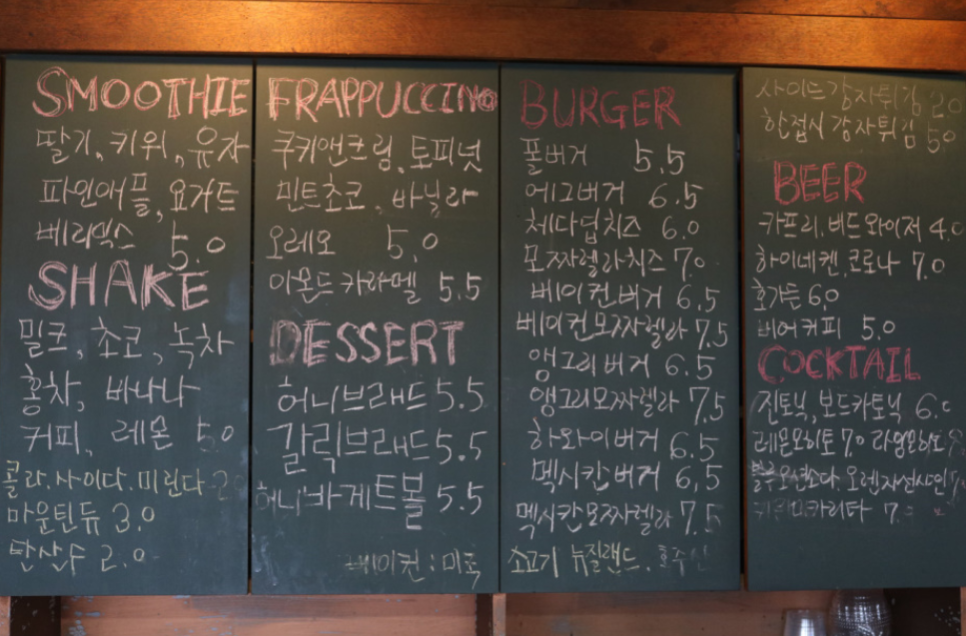 SMOOTHIE
딸기, 키위, 유자
파인애플, 요거트
베리믹스 5.0
SHAKE
밀크, 초코, 녹차
홍차, 바나나
커피, 레몬 5.0
콜라. 사이다. 미린다
마운틴듀 3.0
탄산수 2.0
FRAPPUCCINO
쿠키앤크림, 토피넛
민트초코, 바닐라
오레오 5.0
아몬드카라멜 5.5
DESSERT
허니브래드 5.5
갈릭브래드 5.5
허니바게트볼 5.5
베이컨 : 미국
BURGER
폴버거 5.5
에그버거 6.5
체다덥치즈 6.0
모짜렐라치즈 7.0
베이컨버거 6.5
베이컨모짜렐라 7.5
앵그리버거 6.5
앵그리모짜렐라 7.5
하와이버거 6.5
멕시칸버거 6.5
멕시칸모짜렐라 7.5
소고기 뉴질랜드. 호주산
사이드감자튀김 2.0
한접시감자튀김 5.0
BEER
카프리, 버드와이저 4.0
하이네켄, 코로나 7.0
호가든 6.0
비어커피 5.0
COCKTAIL
진토닉, 보드카토닉 6.0
레몬모히토 7.0 라임모히토
오렌지선샤인